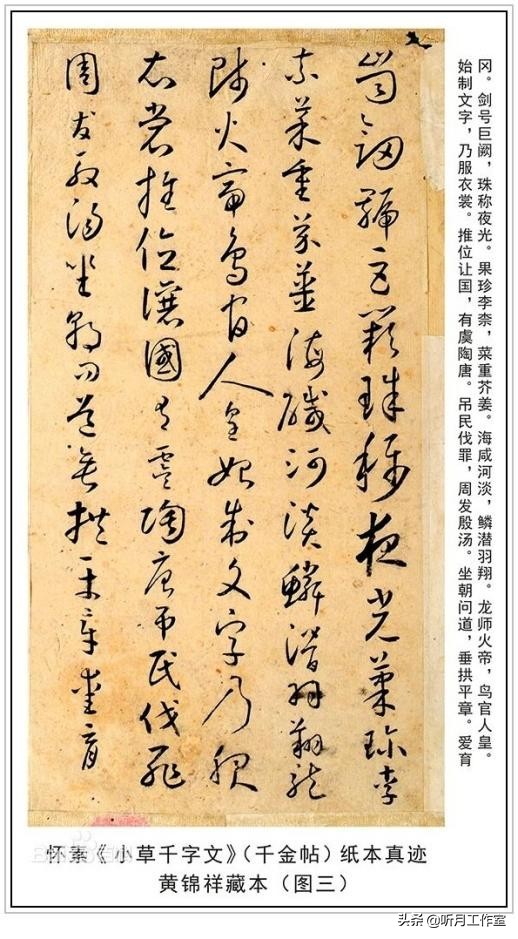 冈。剑号巨阙，珠称夜光。果珍李柰，菜重芥姜。海咸河淡，鳞潜羽翔。龙师火帝，鸟官人皇。
始制文字，乃服衣裳。推位让国，有虞陶唐。吊民伐罪，周发殷汤。坐朝问道，垂拱平章。爱育
崗劒號巨闕珠稱夜光菓珍李
柰菜重芥薑海鹹河淡鱗潛羽翔龍
師火帝鳥官人皇始制文字乃服
衣裳推位讓國有虞陶唐弔民伐罪
周發殷湯坐朝問道垂拱平章愛育
怀素《小草千字文》（千金帖）纸本真迹
黄锦祥藏本（图三）
头条 @听月工作室